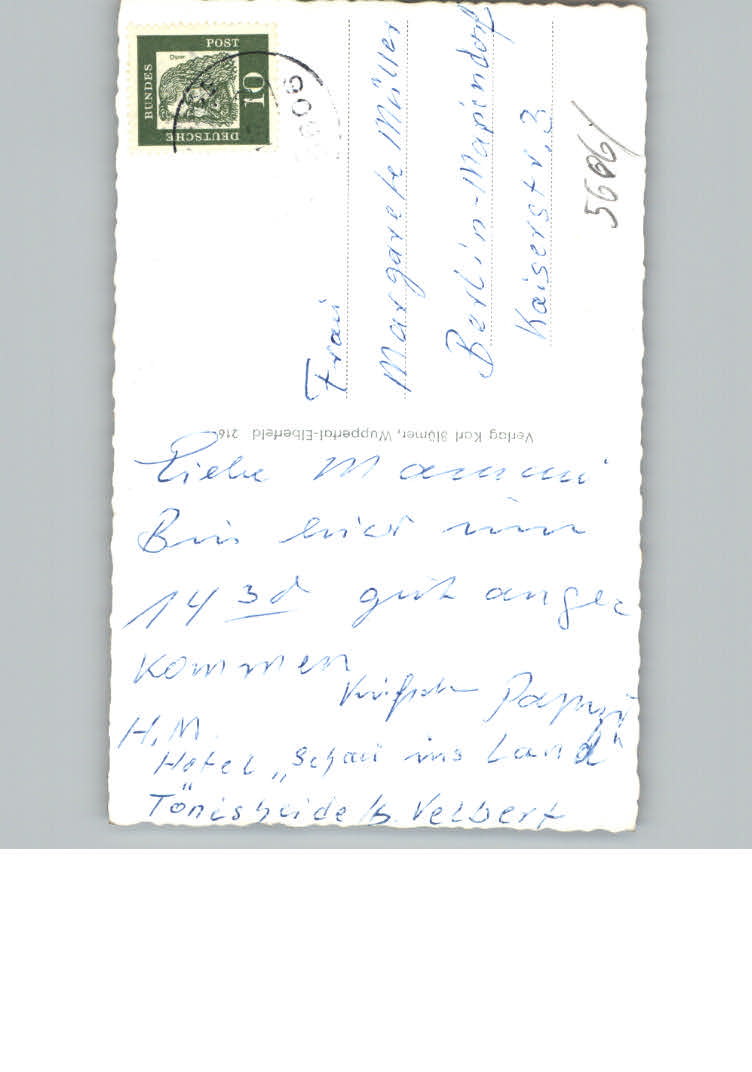 Liebe Mammi
Bin hier um
14 30 gut ange
kommen
Papi
H. M.
Hotel „Schau ins Land"
Tönisheide b. Velbert
Frau
Margarete Müller
Berlin-Mariendorf
Kaiserstr. 3
5606/
Verlag Karl Blümer, Wuppertal-Elberfeld 216
DEUTSCHE
BUNDES
POST
10
Dürer